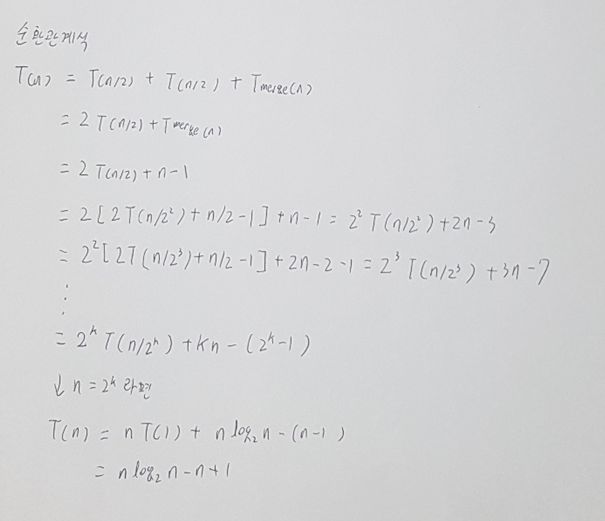 순환관계식
T(n) = T(n/2) + T(n/2) + Tmerge(n)
= 2 T(n/2) + Tmerge(n)
= 2 T(n/2) + n-1
= 2 [ 2 T(n/2²) + n/2 -1 ] + n-1 = 2² T(n/2²) + 2n-3
= 2² [ 2T(n/2³) + n/2 -1 ] + 2n-2-1 = 2³ T(n/2³) + 3n-7
⋮
= 2ᵏ T(n/2ᵏ) + kn - (2ᵏ-1)
↓ n = 2ᵏ 라면
T(n) = n T(1) + n log₂ n - (n-1)
= n log₂ n - n+1